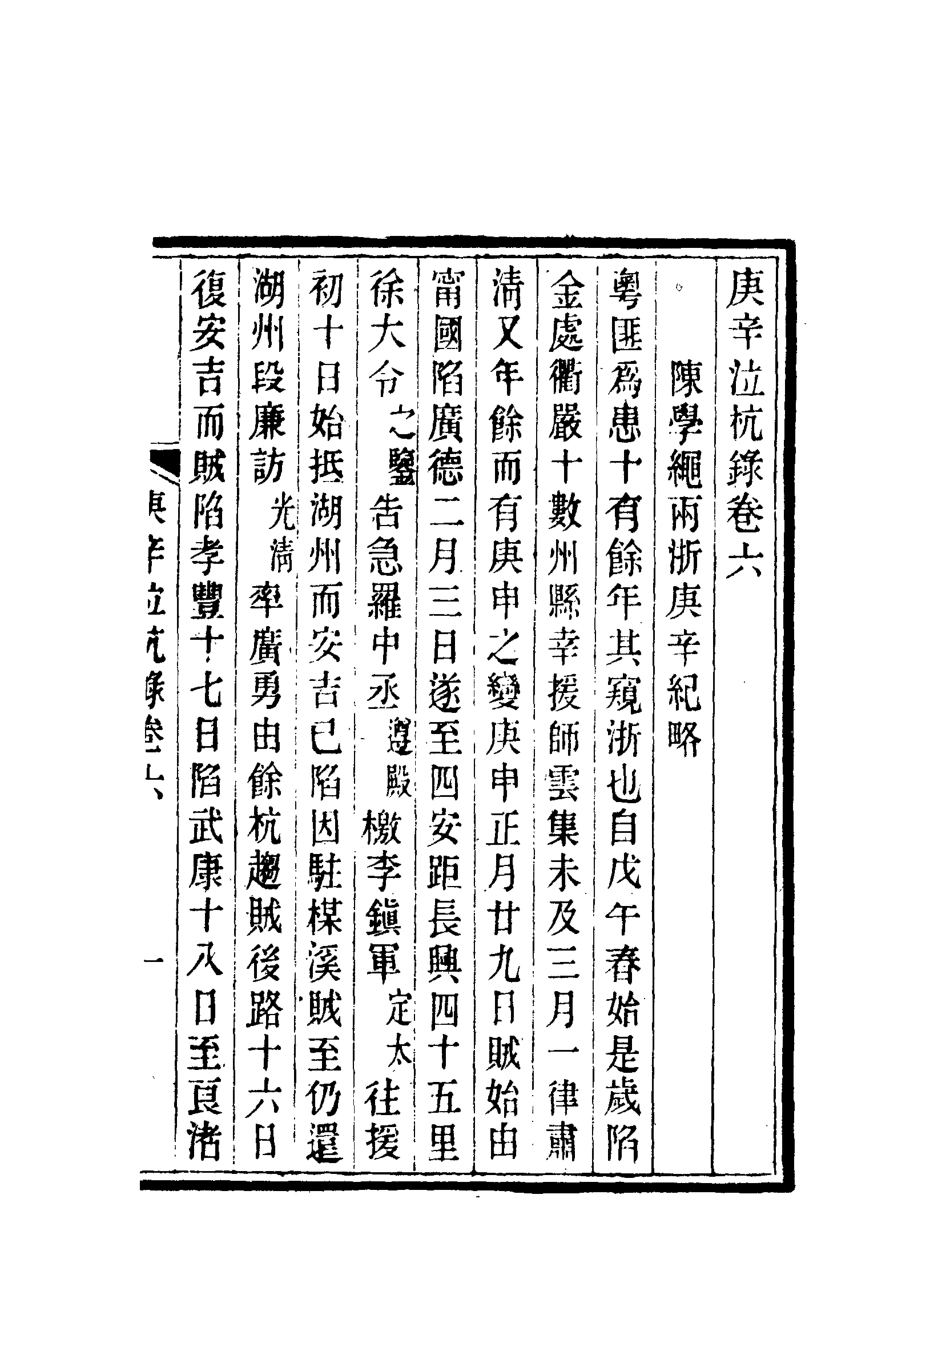 庚辛泣杭錄卷六
陳學繩兩浙庚辛紀略
粵匪爲患十有餘年其窺浙也自戊午春始是歲陷
金處衢嚴十數州縣幸援師雲集未及三月一律肅
清又年餘而有庚申之變庚申正月廿九日賊始由
甯國陷廣德二月三日遂至四安距長興四十五里
徐大令之鑒告急羅中丞遵殿檄李鎭軍定太往援
初十日始抵湖州而安吉已陷因駐楳溪賊至仍還
湖州段廉訪光淸率廣勇由餘杭趨賊後路十六日
復安吉而賊陷孝豐十七日陷武康十八日至良渚
庚辛泣杭錄卷六
一